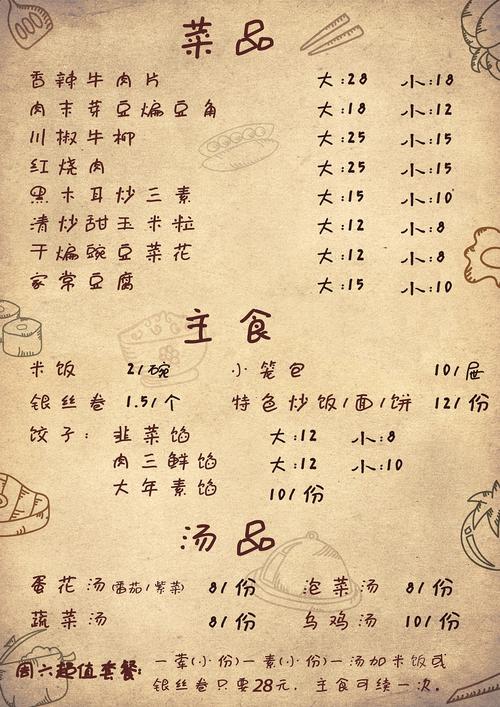 菜品
香辣牛肉片 大:28 小:18
肉末芽豆煸豆角 大:18 小:12
川椒牛柳 大:25 小:15
红烧肉 大:25 小:15
黑木耳炒三素 大:15 小:10
清炒甜玉米粒 大:12 小:8
干煸豌豆菜花 大:12 小:8
家常豆腐 大:15 小:10
主食
米饭 2/碗 小笼包 10/屉
银丝卷 1.5/个 特色炒饭/面/饼 12/份
饺子: 韭菜馅 大:12 小:8
肉三鲜馅 大:12 小:10
大年素馅 10/份
汤品
蛋花汤(番茄/紫菜) 8/份 泡菜汤 8/份
蔬菜汤 8/份 乌鸡汤 10/份
周六超值套餐: 一荤(小份)一素(小份)一汤加米饭或
银丝卷只要28元. 主食可续一次。